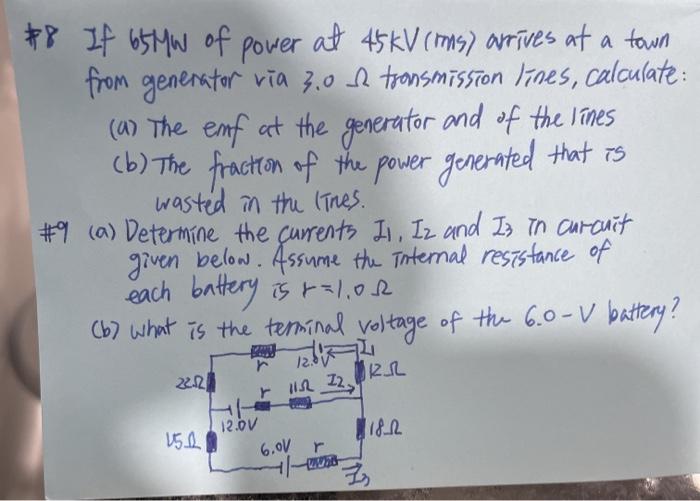 #8 If 65MW of power at 45kV(rms) arrives at a town
from generator via 3.0 Ω transmission lines, calculate:
(a) The emf at the generator end of the lines
(b) The fraction of the power generated that is
wasted in the lines.
#9 (a) Determine the currents I1, I2 and I3 in curcuit
given below. Assume the internal resistance of
each battery is r=1.0 Ω
(b) What is the terminal voltage of the 6.0-V battery?
r 12.0V I1
22Ω r 11Ω I2 12Ω
12.0V
15Ω 18Ω
6.0V r
I3